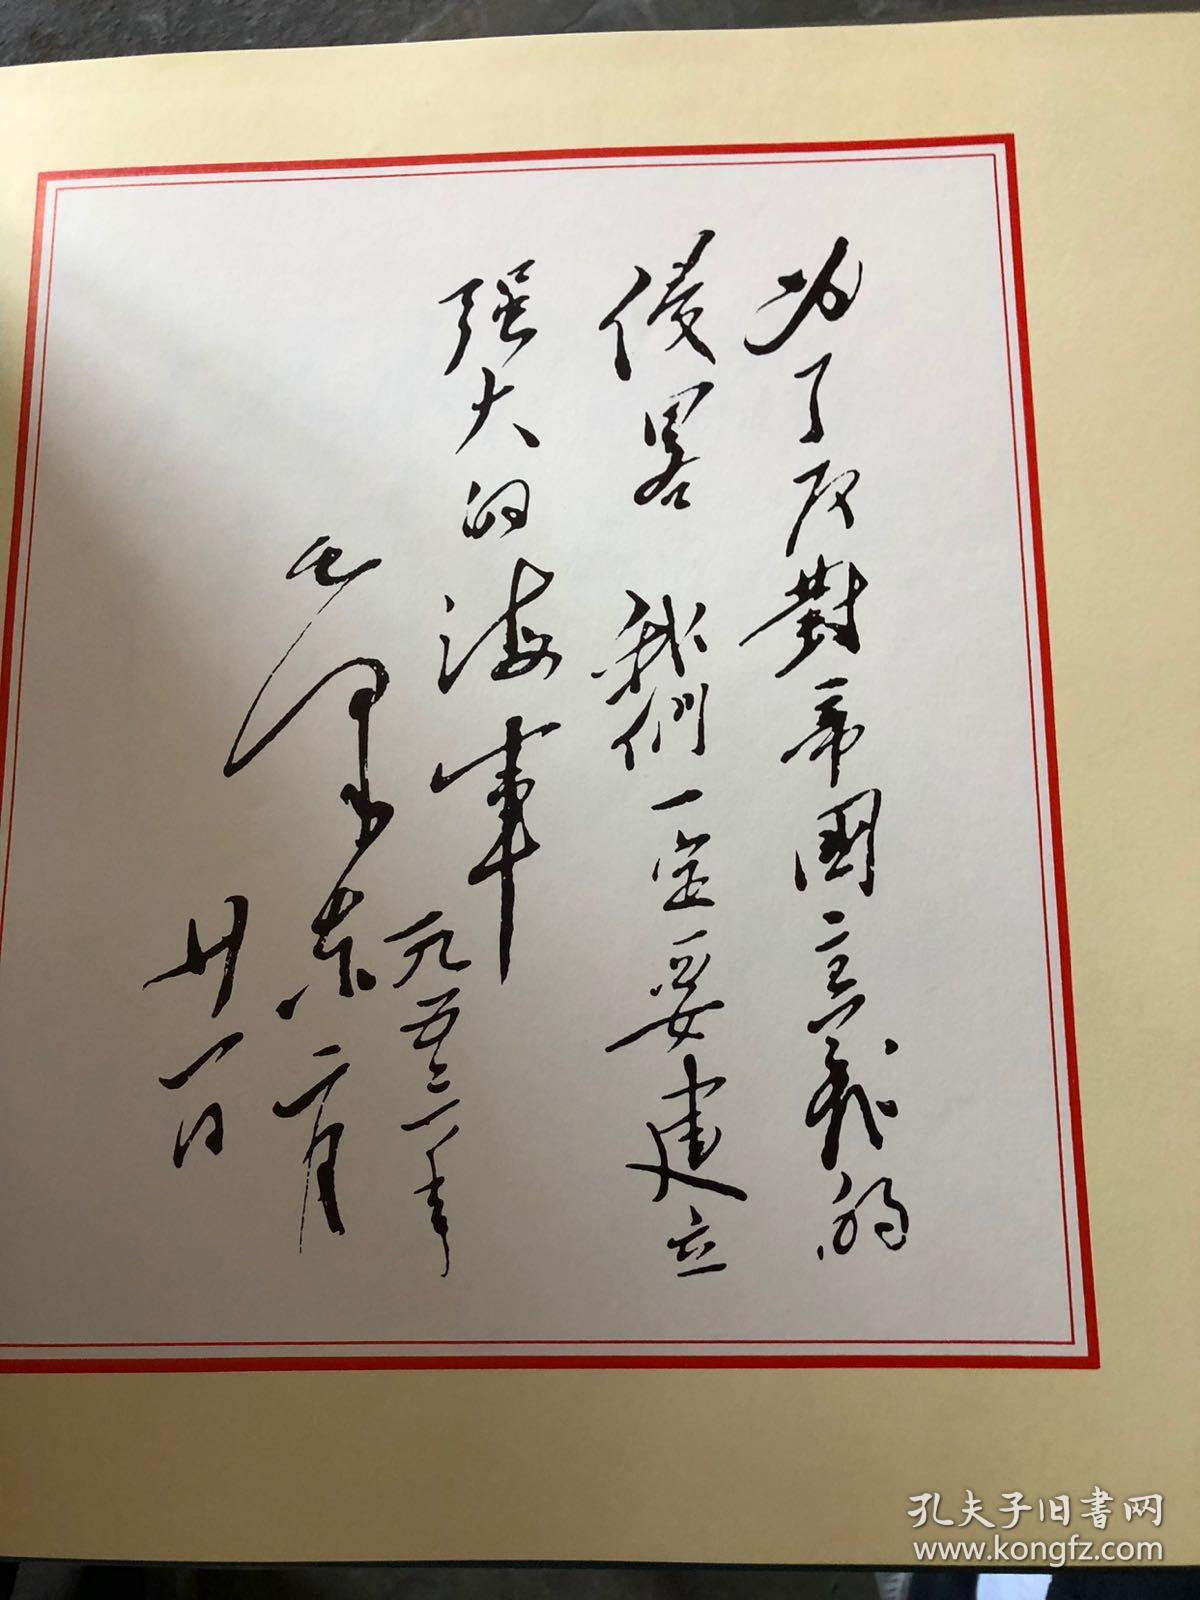 为了反對帝國主義的
侵畧 我們一定要建立
强大的海軍
毛泽东
一九五三年
二月
廿一日
孔夫子旧书网
www.kongfz.com